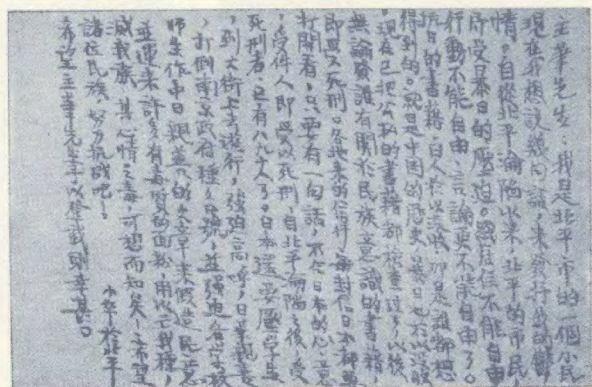 主華先生：我是北平市的一個小民
現在我想說幾句話，來發抒我的鬱
情。自從北平淪陷以來，北平的市民
所受暴日的壓迫。
行動不能自由，言論更不能自由了。
抗日的書籍，日人給以沒收，
得到的。就是中國的歷史，暴日也不以沒收
現在已把公私的書籍都檢查
無論有關於民族意識的書籍
即興以死刑。各地來的信件，每封信日本都要
打開看，只要有一句話，不合日本的心意
受件人即受以死刑，自北平淪陷之後，受
死刑者，已有八九千人了。日本還要學生
到大街上去遊行，強迫高呼，日華親善
打倒南京政府種種口號，並強迫各學校
師生作中日親善的文章來假造民意
並運來許多有毒質的白麵，用以亡我種，
滅我族，其心情之毒可想而知矣！希望
諸位民族，努力抗戰吧。
小華於北平
希望主華先生予以登載則幸甚